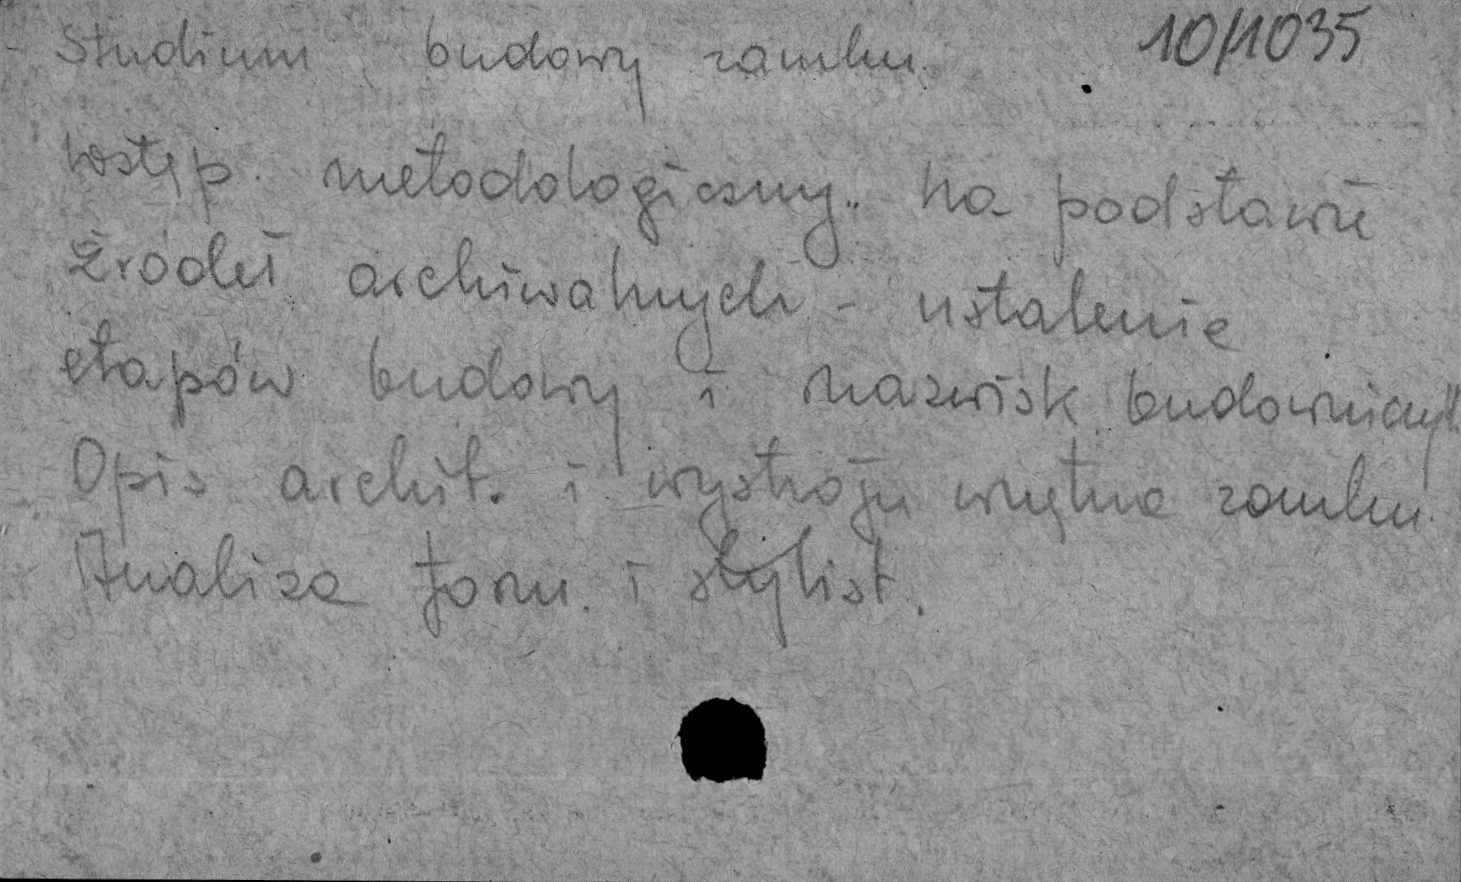 Studium budowy zamku. 10/1035
wstęp. metodologiczny.. Na podstawie
źródeł archiwalnych - ustalenie
etapów budowy i nazwisk budowniczych.
Opis archit. i wystroju wnętrza zamku.
Analiza form. i stylist.